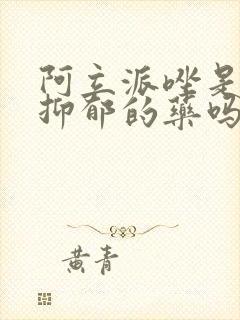 阿立派唑是
抑郁的药吗
黄青